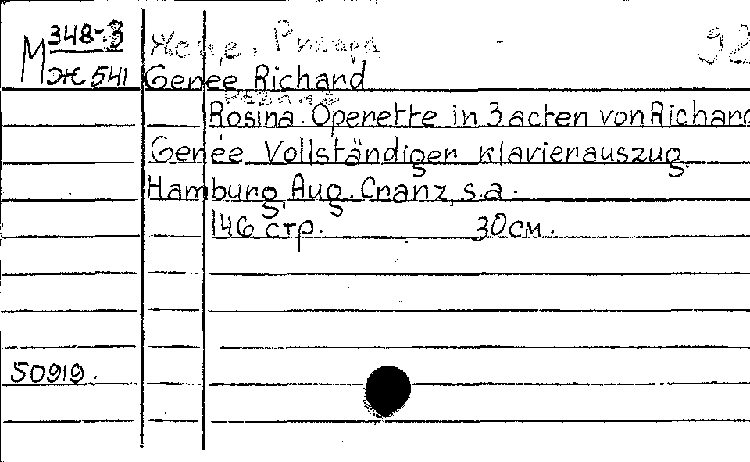 М 348-3
Ж 541
Жене, Рихард
92
Genée Richard
Rosina. Operette in 3 acten von Richard
Genée Vollständiger Klavierauszug
Hamburg, Aug. Cranz, s.a.
146 стр. 30 см.
50919.